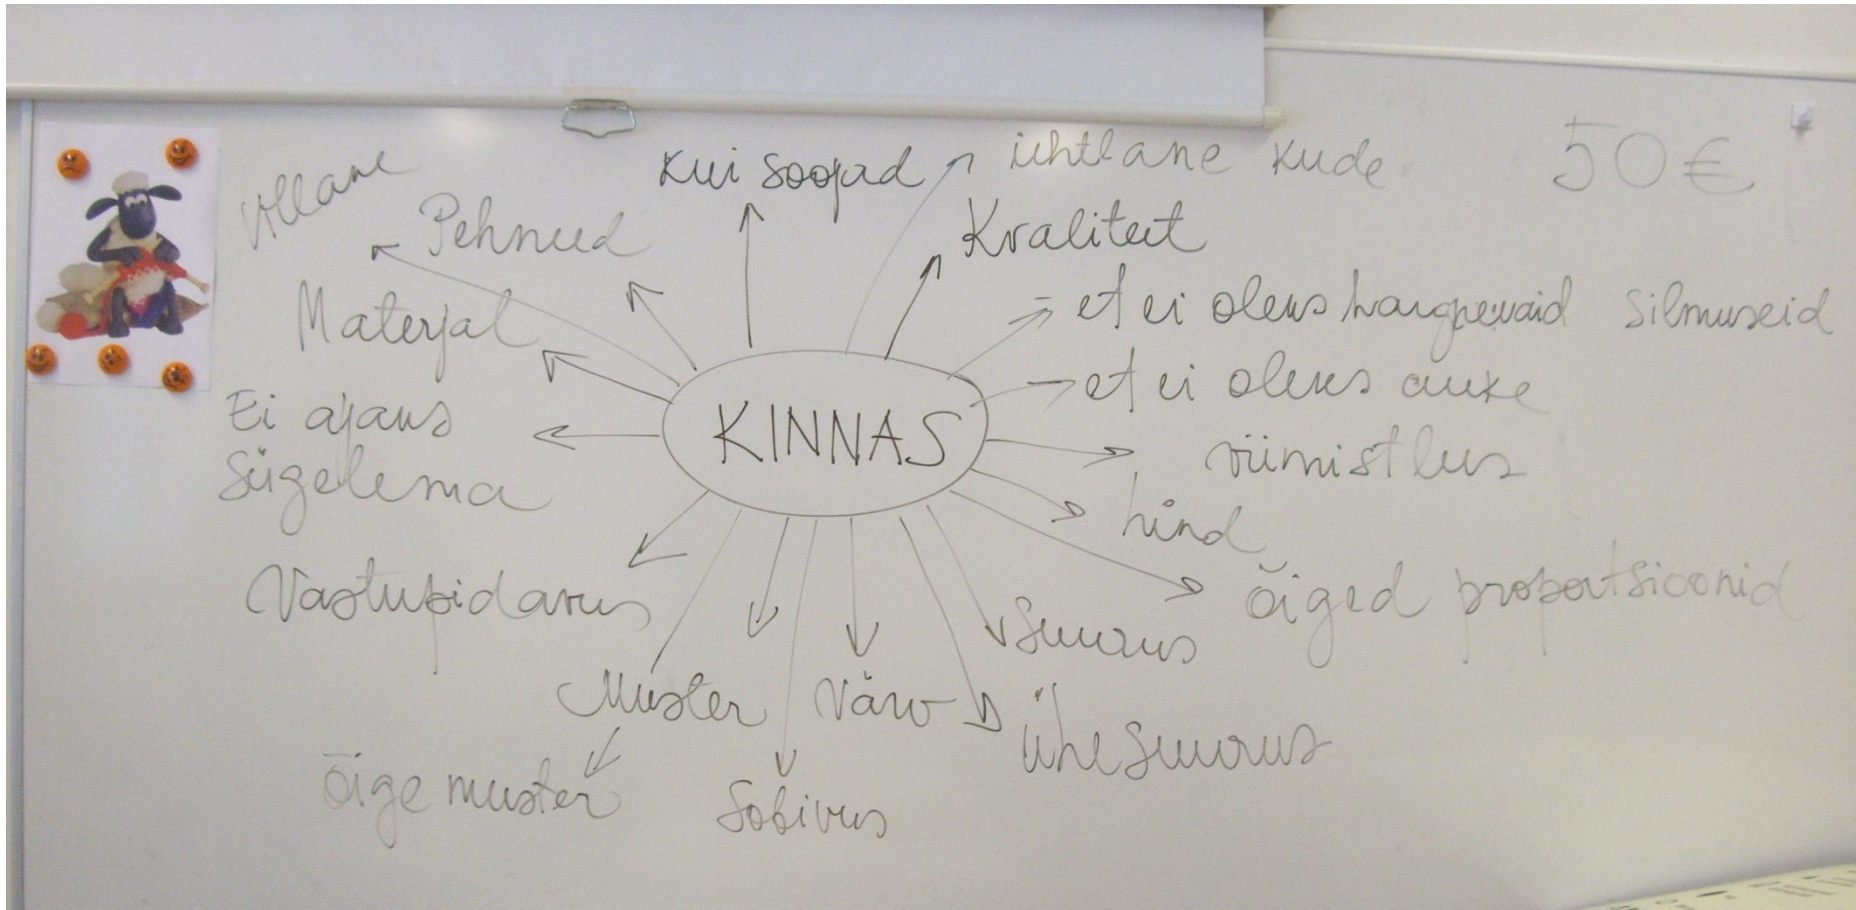 Villane
Pehmed
Kui soojad
ühtlane kude
50 €
Kvaliteet
Materjal
et ei oleks hargnevaid silmuseid
et ei oleks auke
Ei ajaks
sügelema
KINNAS
viimistlus
hind
Vastupidavus
õiged proportsioonid
Suurus
Muster
Värv
ühesuurus
õige muster
Sobivus